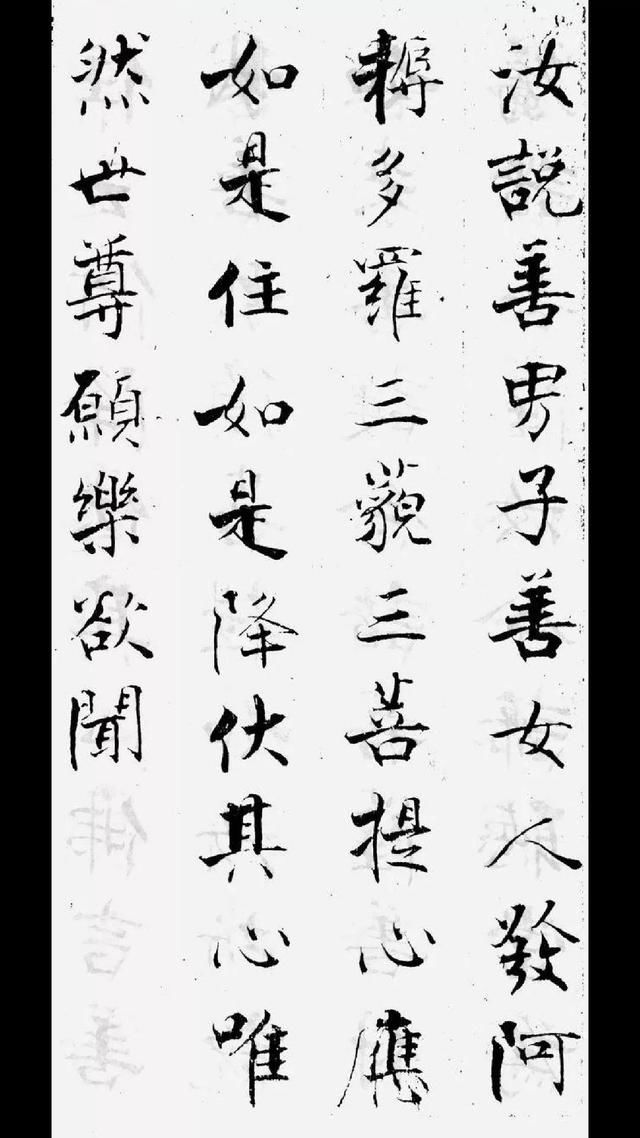 汝說善男子善女人發阿
耨多羅三藐三菩提心應
如是住如是降伏其心唯
然世尊願樂欲聞